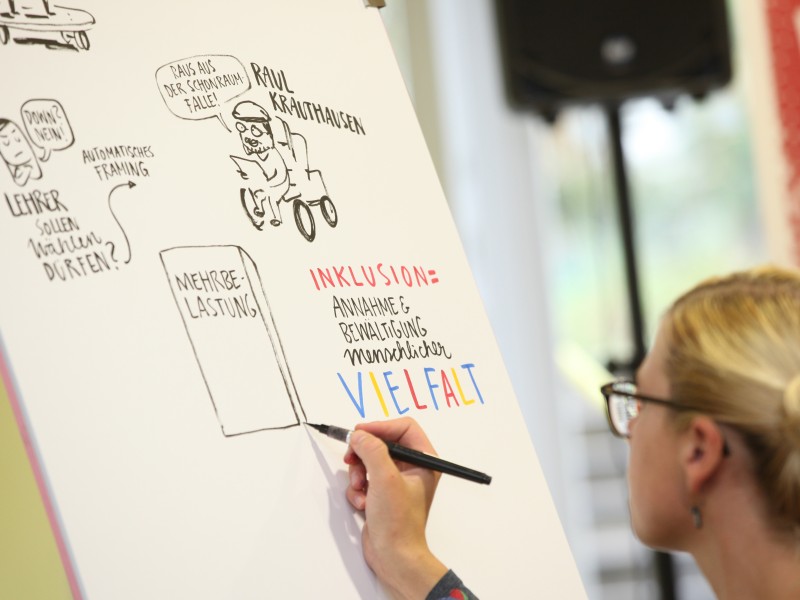 RAUS AUS
DER SCHONRAUM-
FALLE!
RAUL
KRAUTHAUSEN
DOWN?
NEIN!
AUTOMATISCHES
FRAMING
LEHRER
SOLLEN
Wählen
DÜRFEN?
MEHRBE-
LASTUNG
INKLUSION=
ANNAHME &
BEWÄLTIGUNG
menschlicher
VIELFALT